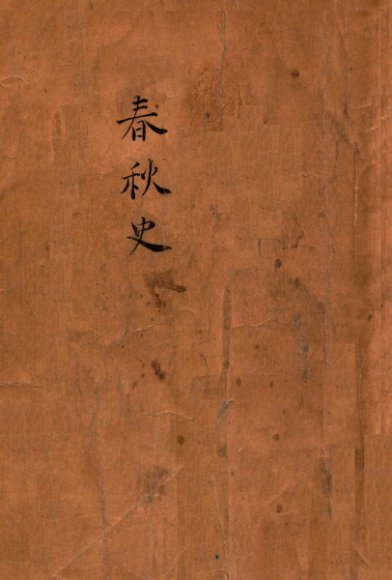 春秋史